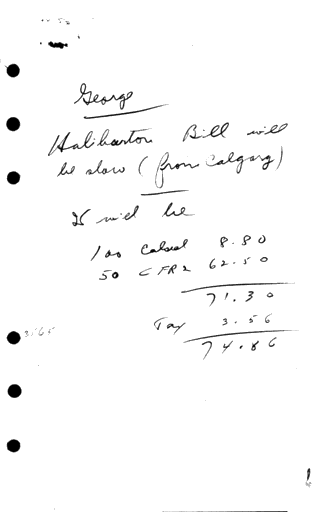 George
Halibarton Bill will
be slow (from Calgary)
It will be
100 Calseal 8.80
50 CFR2 62.50
71.30
Tax 3.56
74.86